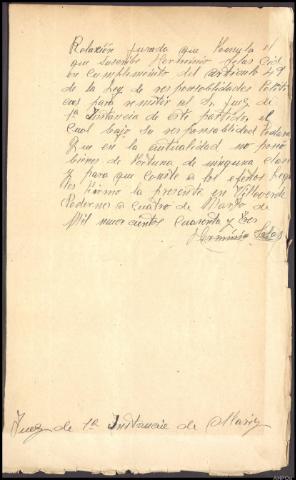 Relación jurada que formula el
que suscribe Herminio Salas Cid
en cumplimiento del articulo 49
de la Ley de responsabilidades Politi
cas para remitir al Sr Juez de
1ª Instancia de este partido, el
cual bajo su responsabilidad declara
Que en la actualidad no posee
bienes de fortuna de ninguna clase
y para que conste a los efectos
firmo la presente en Villaverde
a cuatro de Marzo de
Mil nuevecientos cuarenta y tres
Herminio Salas
Juez de 1ª Instancia de